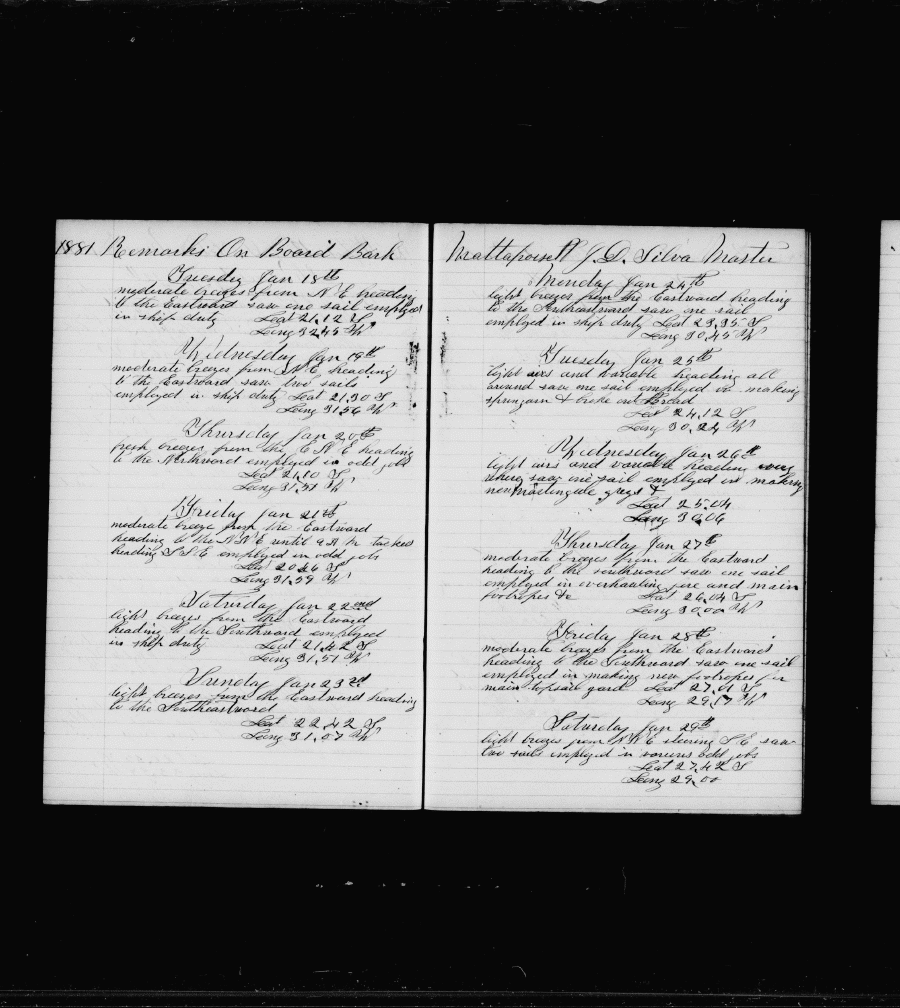 1881 Remarks On Board Bark
Tuesday Jan 18th
moderate breezes from N E heading
to the Eastward saw one sail employed
in ship duty Lat 21,12 S
Long 32,45 W
Wednesday Jan 19th
moderate breezes from N E heading
to the Eastward saw two sails
employed in ship duty Lat 21,30 S
Long 31,56 W
Thursday Jan 20th
fresh breezes from the E N E heading
to the Northward employed in odd jobs
Lat 21,10 S
Long 31,51 W
Friday Jan 21st
moderate breeze from the Eastward
heading to the N N E until 9 A M tacked
heading S S E employed in odd jobs
Lat 20,46 S
Long 31,59 W
Saturday Jan 22nd
light breezes from the Eastward
heading to the Southward employed
in ship duty Lat 21,42 S
Long 31,51 W
Sunday Jan 23rd
light breezes from the Eastward heading
to the Southeastward
Lat 22,42 S
Long 31,07 W
Mattapoisett J. D. Silva Master
Monday Jan 24th
light breezes from the Eastward heading
to the Southeastward saw one sail
employed in ship duty Lat 23,35 S
Long 30,45 W
Tuesday Jan 25th
light airs and variable heading all
around saw one sail employed in making
spunyarn & broke out Bread
Lat 24,12 S
Long 30,24 W
Wednesday Jan 26th
light airs and variable heading every
where saw one sail employed in making
new martingale guys &
Lat 25,04
Long 30,06
Thursday Jan 27th
moderate breezes from the Eastward
heading to the southward saw one sail
employed in overhauling fore and main
footropes &c Lat 26,04 S
Long 30,00 W
Friday Jan 28th
moderate breezes from the Eastward
heading to the Southward saw one sail
employed in making new footropes for
main topsail yard Lat 27,01 S
Long 29,17 W
Saturday Jan 29th
light breezes from N N E steering S E saw
two sails employed in various odd jobs
Lat 27,42 S
Long 29,00